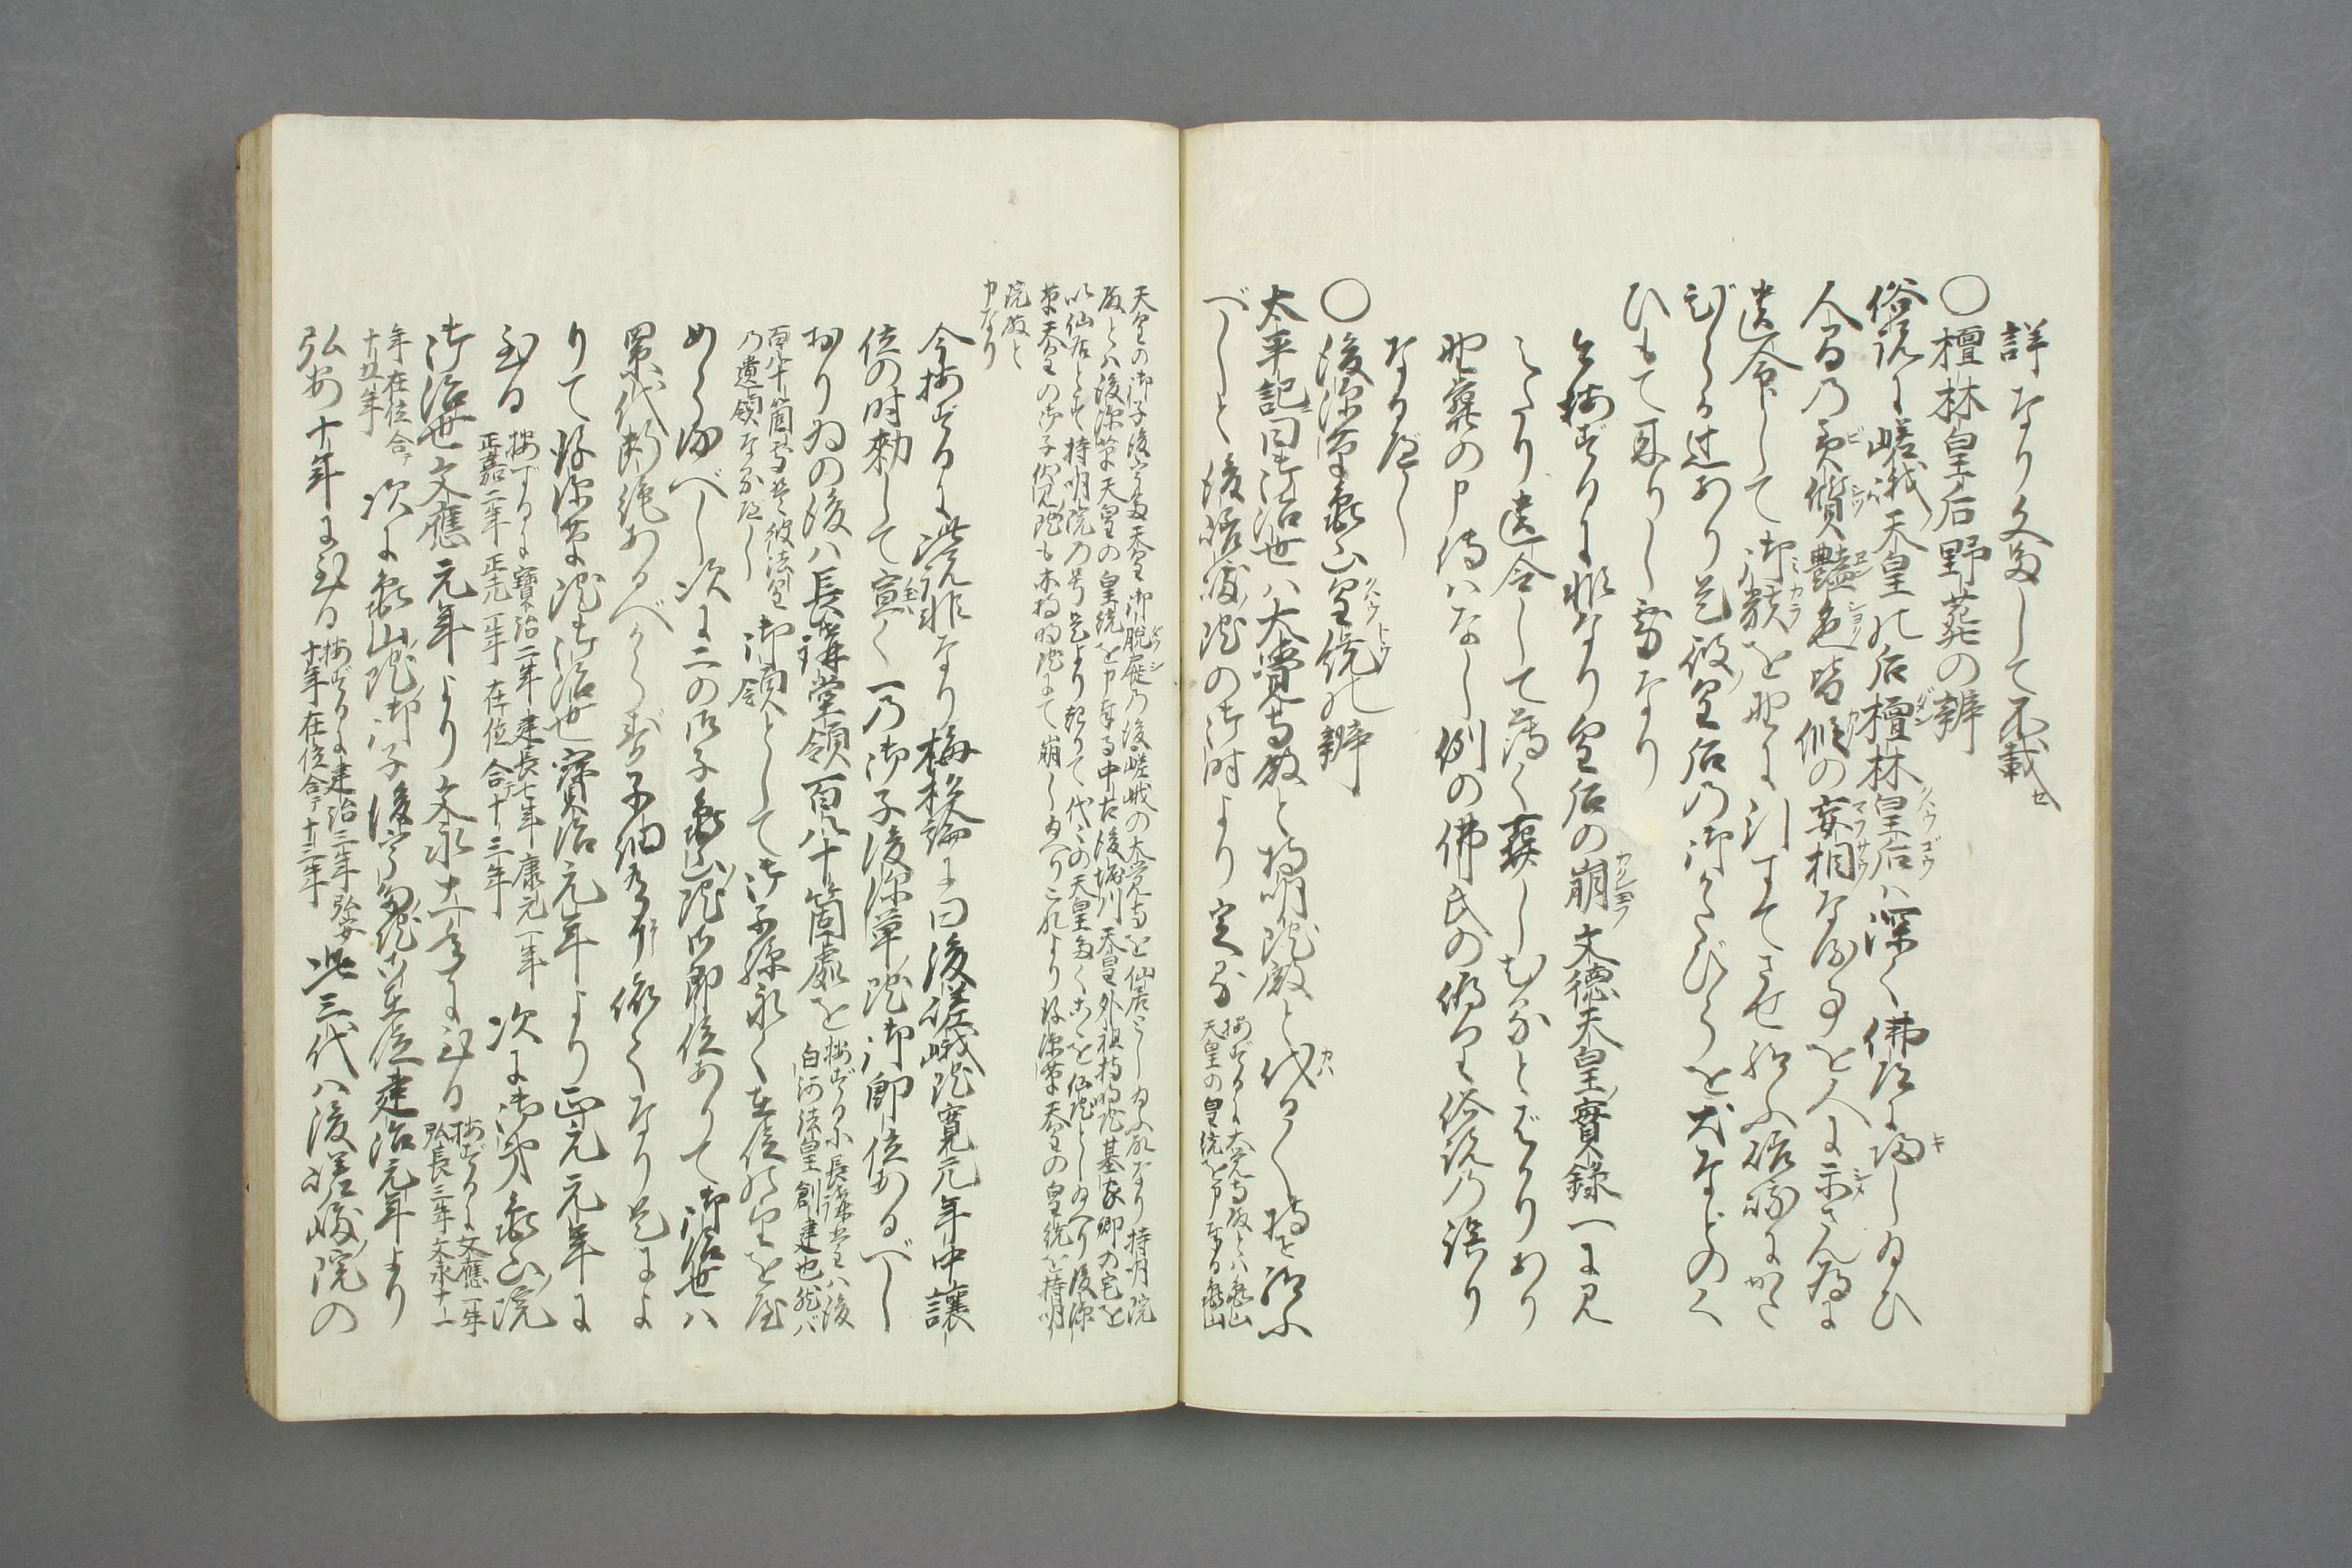 詳なり文多して不載せ
○檀林皇后野葬の辨
俗説に嵯峨天皇の后檀林皇后ハ深く佛法に帰し給ひ
人間の美質艶色皆假の妄相なる事を人に示さん為に
遺令して御骸を野に引すてさせ給ふ
辻あり是彼皇后の御かたびらを犬などのく
ひもて来りし所なり
今按ずるに非なり皇后の崩文徳天皇實録一に見
えたり遺令して薄く葬しむるとばかりあり
野葬の事ハなし例の佛氏の偽にて俗説乃誤り
なるべし
○後深草亀山皇統の辨
太平記曰御治世ハ大覚寺殿と持明院殿と代る〳〵持せ給ふ
べしと後嵯峨院の御時より定る
按ずるに大覚寺殿とハ亀山
天皇の皇統を申奉る亀山
天皇の御子後宇多天皇御脱屣乃後嵯峨の大覚寺を仙居とし給ふ故なり持明院
殿とハ後深草天皇の皇統を申奉る中古後堀川天皇外祖持明院基家卿の宅を
以仙居とす持明院乃号是より起りて代々の天皇多くこゝを仙院とし給へり後深
草天皇の御子伏見院も亦持明院にて崩し給へりこれより後深草天皇の皇統を持明
院殿と
申なり
今按ずるに此説非なり梅松論に曰後嵯峨院寛元年中譲
位の時勅して宣く一乃御子後深草院御即位あるべし
おりゐの後ハ長講堂領百八十箇處を
按ずるに長講堂ハ後
白河法皇創建也然バ
百八十箇所ハ彼法皇
乃遺領なるべし
御領として御子孫永く在位の望を
めらるべし次に二の御子亀山院御即位ありて御治世ハ
累代断絶あるべからず子細有に依てなり是によ
りて後深草院御治世寶治元年より正元元年に
至る
按ずるに寶治二年建長七年康元一年
正嘉二年正元一年在位合テ十三年
次に亀山院
御治世文應元年より文永十一年に至る
按ずるに文應一年
弘長三年文永十一
年在位合テ
十五年
次に亀山院御子後宇多院御在位建治元年より
弘安十年に至る
按ずるに建治三年弘安
十年在位合テ十三年
此三代ハ後嵯峨院の